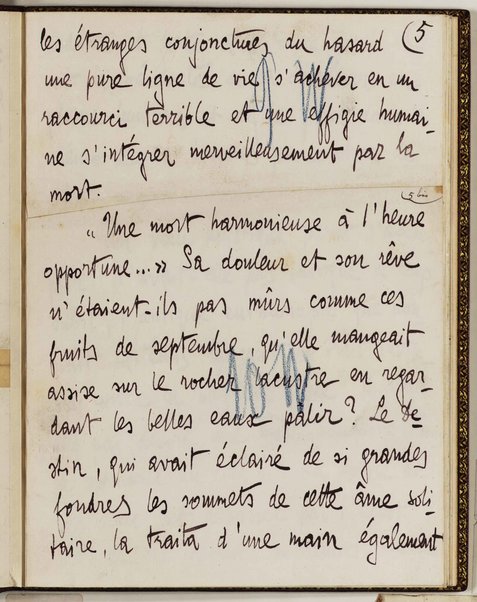 les étranges conjonctures du hasard (5
une pure ligne de vie s'achever en un
raccourci terrible et une effigie humai-
ne s'intégrer merveilleusement par la
mort.
(5 bis
"Une mort harmonieuse à l'heure
opportune...» Sa douleur et son rêve
n'étaient-ils pas mûrs comme ces
fruits de septembre, qu'elle mangeait
assise sur le rocher lacustre en regar-
dant les belles eaux pâlir? Le De-
stin, qui avait éclairé de si grandes
foudres les sommets de cette âme soli-
taire, la traita d'une main également